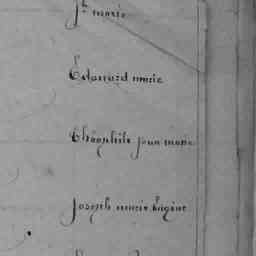 Jh marie
Edouard marie
Théophile jean marie
Joseph marie Eugène